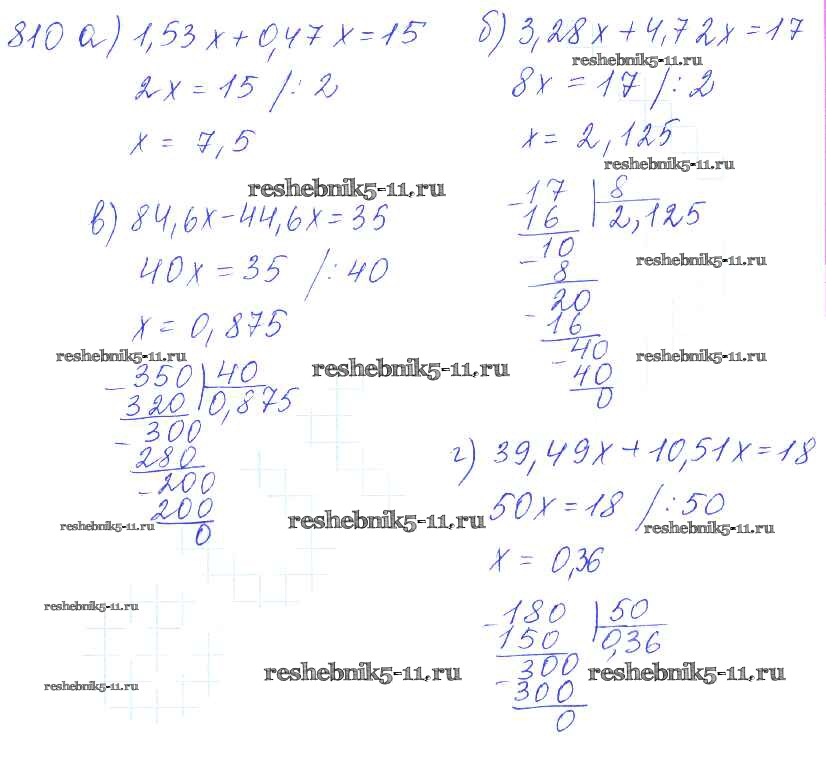 810 а) 1,53x+0,47x=15
2x = 15 /: 2
x = 7,5
reshebnik5-11.ru
б) 3,28x+4,72x=17
reshebnik5-11.ru
8x = 17 /: 2
x = 2,125
reshebnik5-11.ru
-17 | 8
16 | 2,125
-10
8
reshebnik5-11.ru
20
-16
-40
reshebnik5-11.ru
40
0
в) 84,6x-44,6x=35
40x = 35 /: 40
x = 0,875
reshebnik5-11.ru
reshebnik5-11.ru
-350 | 40
320 | 0,875
-300
280
-200
200
reshebnik5-11.ru
0
reshebnik5-11.ru
г) 39,49x+10,51x=18
50x = 18 /: 50
reshebnik5-11.ru
x = 0,36
-180 | 50
150 | 0,36
-300
300
0
reshebnik5-11.ru
reshebnik5-11.ru
reshebnik5-11.ru
reshebnik5-11.ru